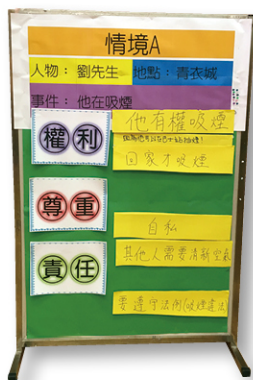 情境A
人物：劉先生
地點：青衣城
事件：他在吸煙
權利
他有權吸煙
回家才吸煙
尊重
自私
其他人需要清新空氣
責任
要遵守法例(吸煙違法)